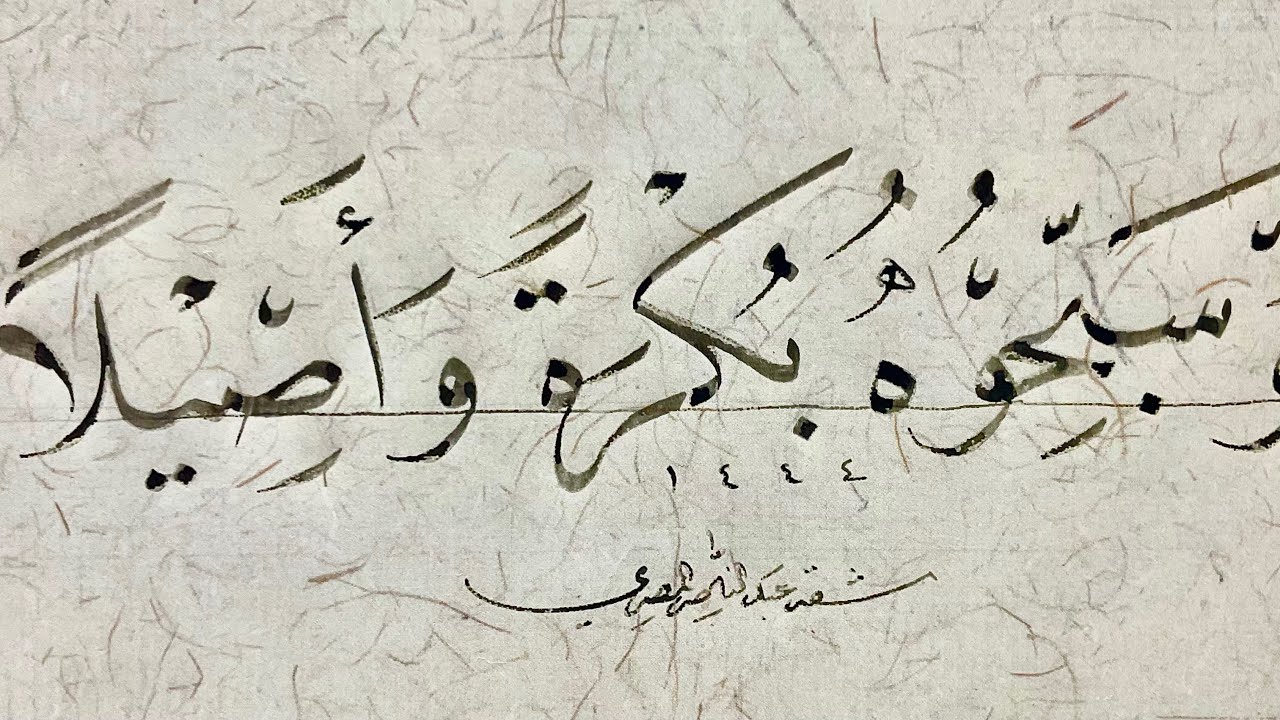 وَسَبِّحُوْهُ بُكْرَةً وَأَصِيْلًا
١٤٤٤
مشقه عبد الناصر المصري